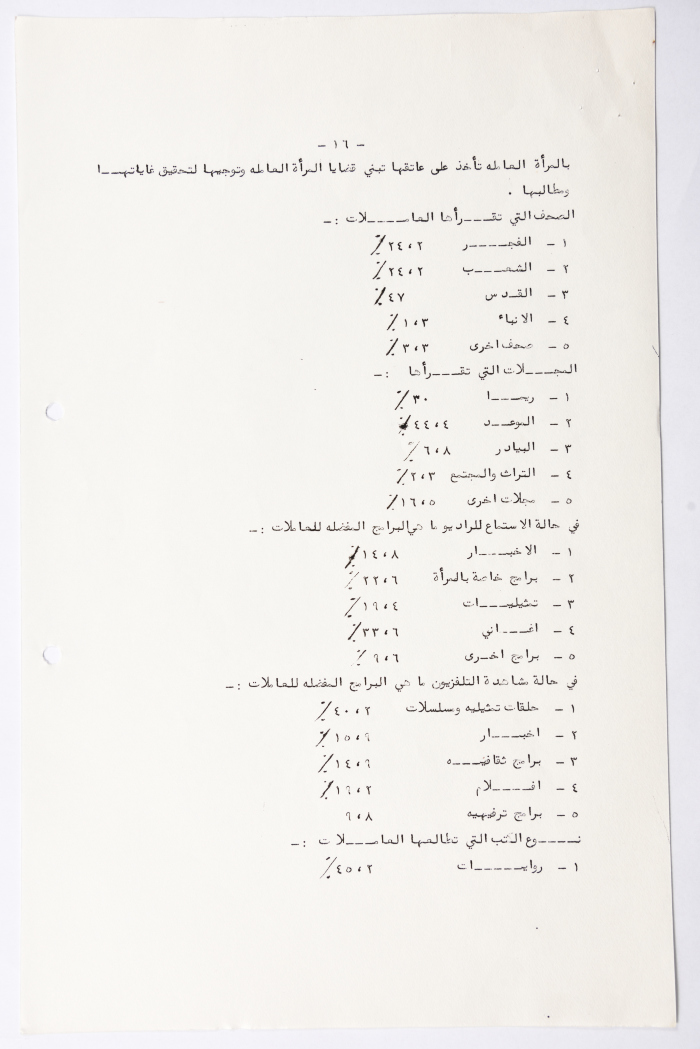 - ١٦ -
بالمرأة العامله تأخذ على عاتقها تبني قضايا المرأة العامله وتوجيهها لتحقيق غاياتهـــا
ومطالبها .
الصحف التي تقـــرأها العامـــــلات :-
١ - الفجـــــر ٢٤،٢٪
٢ - الشعـــب ٢٤،٢٪
٣ - القدس ٤٧٪
٤ - الانباء ١،٣٪
٥ - صحف اخرى ٣،٣٪
المجـــلات التي تقـــرأها :-
١ - ريمـــا ٣٠٪
٢ - الموعـد ٤٤،٤٪
٣ - البيادر ٦،٨٪
٤ - التراث والمجتمع ٢،٣٪
٥ - مجلات اخرى ١٦،٥٪
في حالة الاستماع للراديو ما هي البرامج المفضله للعاملات :-
١ - الاخبـــار ١٤،٨٪
٢ - برامج خاصة بالمرأة ٢٢،٦٪
٣ - تمثيليـــات ١٩،٤٪
٤ - اغـــاني ٣٣،٦٪
٥ - برامج اخرى ٩،٦٪
في حالة مشاهدة التلفزيون ما هي البرامج المفضله للعاملات :-
١ - حلقات تمثيليه وسلسلات ٤٠،٢٪
٢ - اخبـــار ١٥،٩٪
٣ - برامج ثقافيـــه ١٤،٩٪
٤ - افـــــلام ١٩،٢٪
٥ - برامج ترفيهيه ٩،٨
نـــــوع الكتب التي تطالعها العامـــلات :-
١ - روايـــــات ٤٥،٢٪